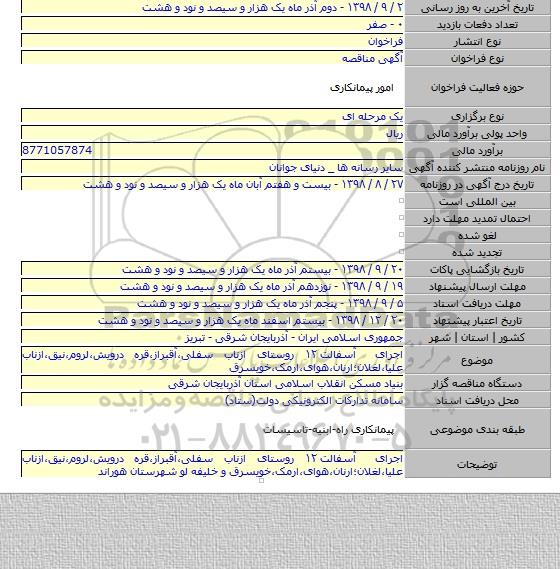 تاریخ آخرین به روز رسانی ۲ / ۹ / ۱۳۹۸ - دوم آذر ماه یک هزار و سیصد و نود و هشت
تعداد دفعات بازدید ۰ - صفر
نوع انتشار فراخوان
نوع فراخوان آگهی مناقصه
حوزه فعالیت فراخوان امور پیمانکاری
نوع برگزاری یک مرحله ای
واحد پولی برآورد مالی ریال
برآورد مالی 8771057874
نام روزنامه منتشر کننده آگهی سایر رسانه ها _ دنیای جوانان
تاریخ درج آگهی در روزنامه ۲۷ / ۸ / ۱۳۹۸ - بیست و هفتم آبان ماه یک هزار و سیصد و نود و هشت
بین المللی است
احتمال تمدید مهلت دارد
لغو شده
تجدید شده
تاریخ بازگشایی پاکات ۲۰ / ۹ / ۱۳۹۸ - بیستم آذر ماه یک هزار و سیصد و نود و هشت
مهلت ارسال پیشنهاد ۱۹ / ۹ / ۱۳۹۸ - نوزدهم آذر ماه یک هزار و سیصد و نود و هشت
مهلت دریافت اسناد ۵ / ۹ / ۱۳۹۸ - پنجم آذر ماه یک هزار و سیصد و نود و هشت
تاریخ اعتبار پیشنهاد ۲۰ / ۱۲ / ۱۳۹۸ - بیستم اسفند ماه یک هزار و سیصد و نود و هشت
کشور | استان | شهر جمهوری اسلامی ایران - آذربایجان شرقی - تبریز
موضوع اجرای آسفالت ۱۲ روستای ازناب سفلی،آقبراز،قره درویش،لروم،نیق،ازناب
علیا،لغلان؛ارنان،هوای،ارمک،خویسرق
دستگاه مناقصه گزار بنیاد مسکن انقلاب اسلامی استان آذربایجان شرقی
محل دریافت اسناد سامانه تدارکات الکترونیکی دولت(ستاد)
طبقه بندی موضوعی پیمانکاری راه-ابنیه-تاسیسات
توضیحات اجرای آسفالت ۱۲ روستای ازناب سفلی،آقبراز،قره درویش،لروم،نیق،ازناب
علیا،لغلان؛ارنان،هوای،ارمک،خویسرق و خلیفه لو شهرستان هوراند
۰۲۱-۸۸۳۴۹۶۷۰-۵